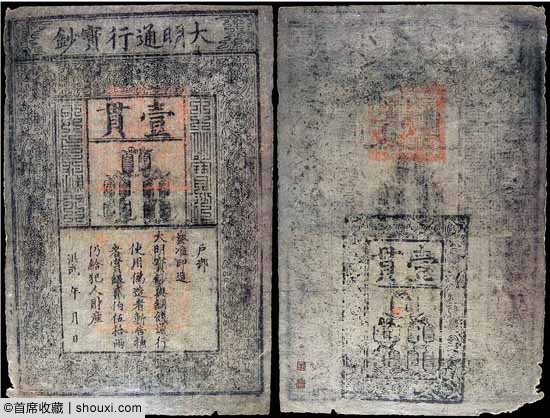 大明通行寶鈔
壹貫
戶部
奏准印造
大明寶鈔與銅錢通行
使用偽造者斬告捕
者賞銀貳伯伍拾兩
仍給犯人財產
洪武 年 月 日
壹貫
©首席收藏 | shouxi.com